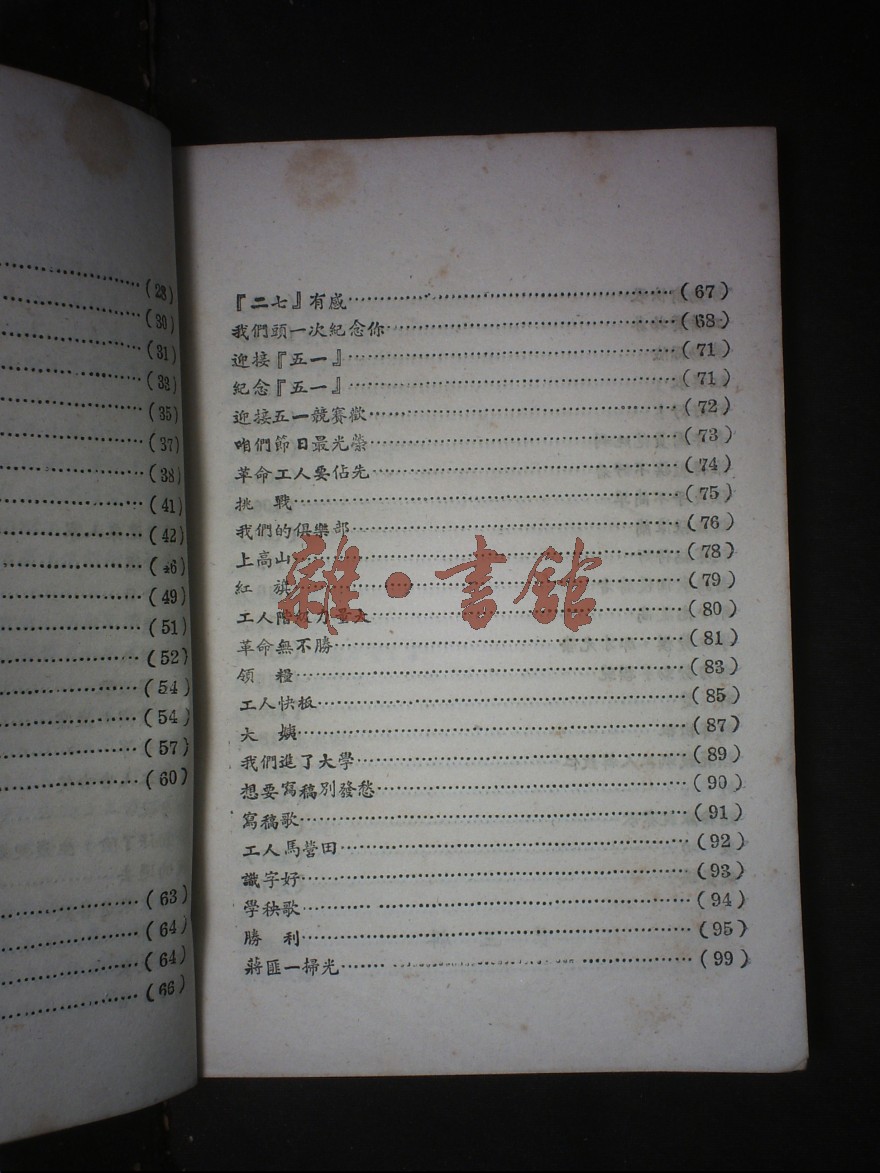 (28)
(30)
(31)
(33)
(35)
(37)
(38)
(41)
(42)
(46)
(49)
(51)
(52)
(54)
(54)
(57)
(60)
(63)
(64)
(64)
(66)
『二七』有感……(67)
我們頭一次紀念你……(68)
迎接『五一』……(71)
紀念『五一』……(71)
迎接五一競賽歡……(72)
咱們節日最光榮……(73)
革命工人要佔先……(74)
挑　戰……(75)
我們的俱樂部……(76)
上高山……(78)
紅　旗……(79)
工人階級力量大……(80)
革命無不勝……(81)
領　糧……(83)
工人快板……(85)
大　姨……(87)
我們進了大學……(89)
想要寫稿別發愁……(90)
寫稿歌……(91)
工人馬營田……(92)
識字好……(93)
學秧歌……(94)
勝　利……(95)
蔣匪一掃光……(99)
雜·書館